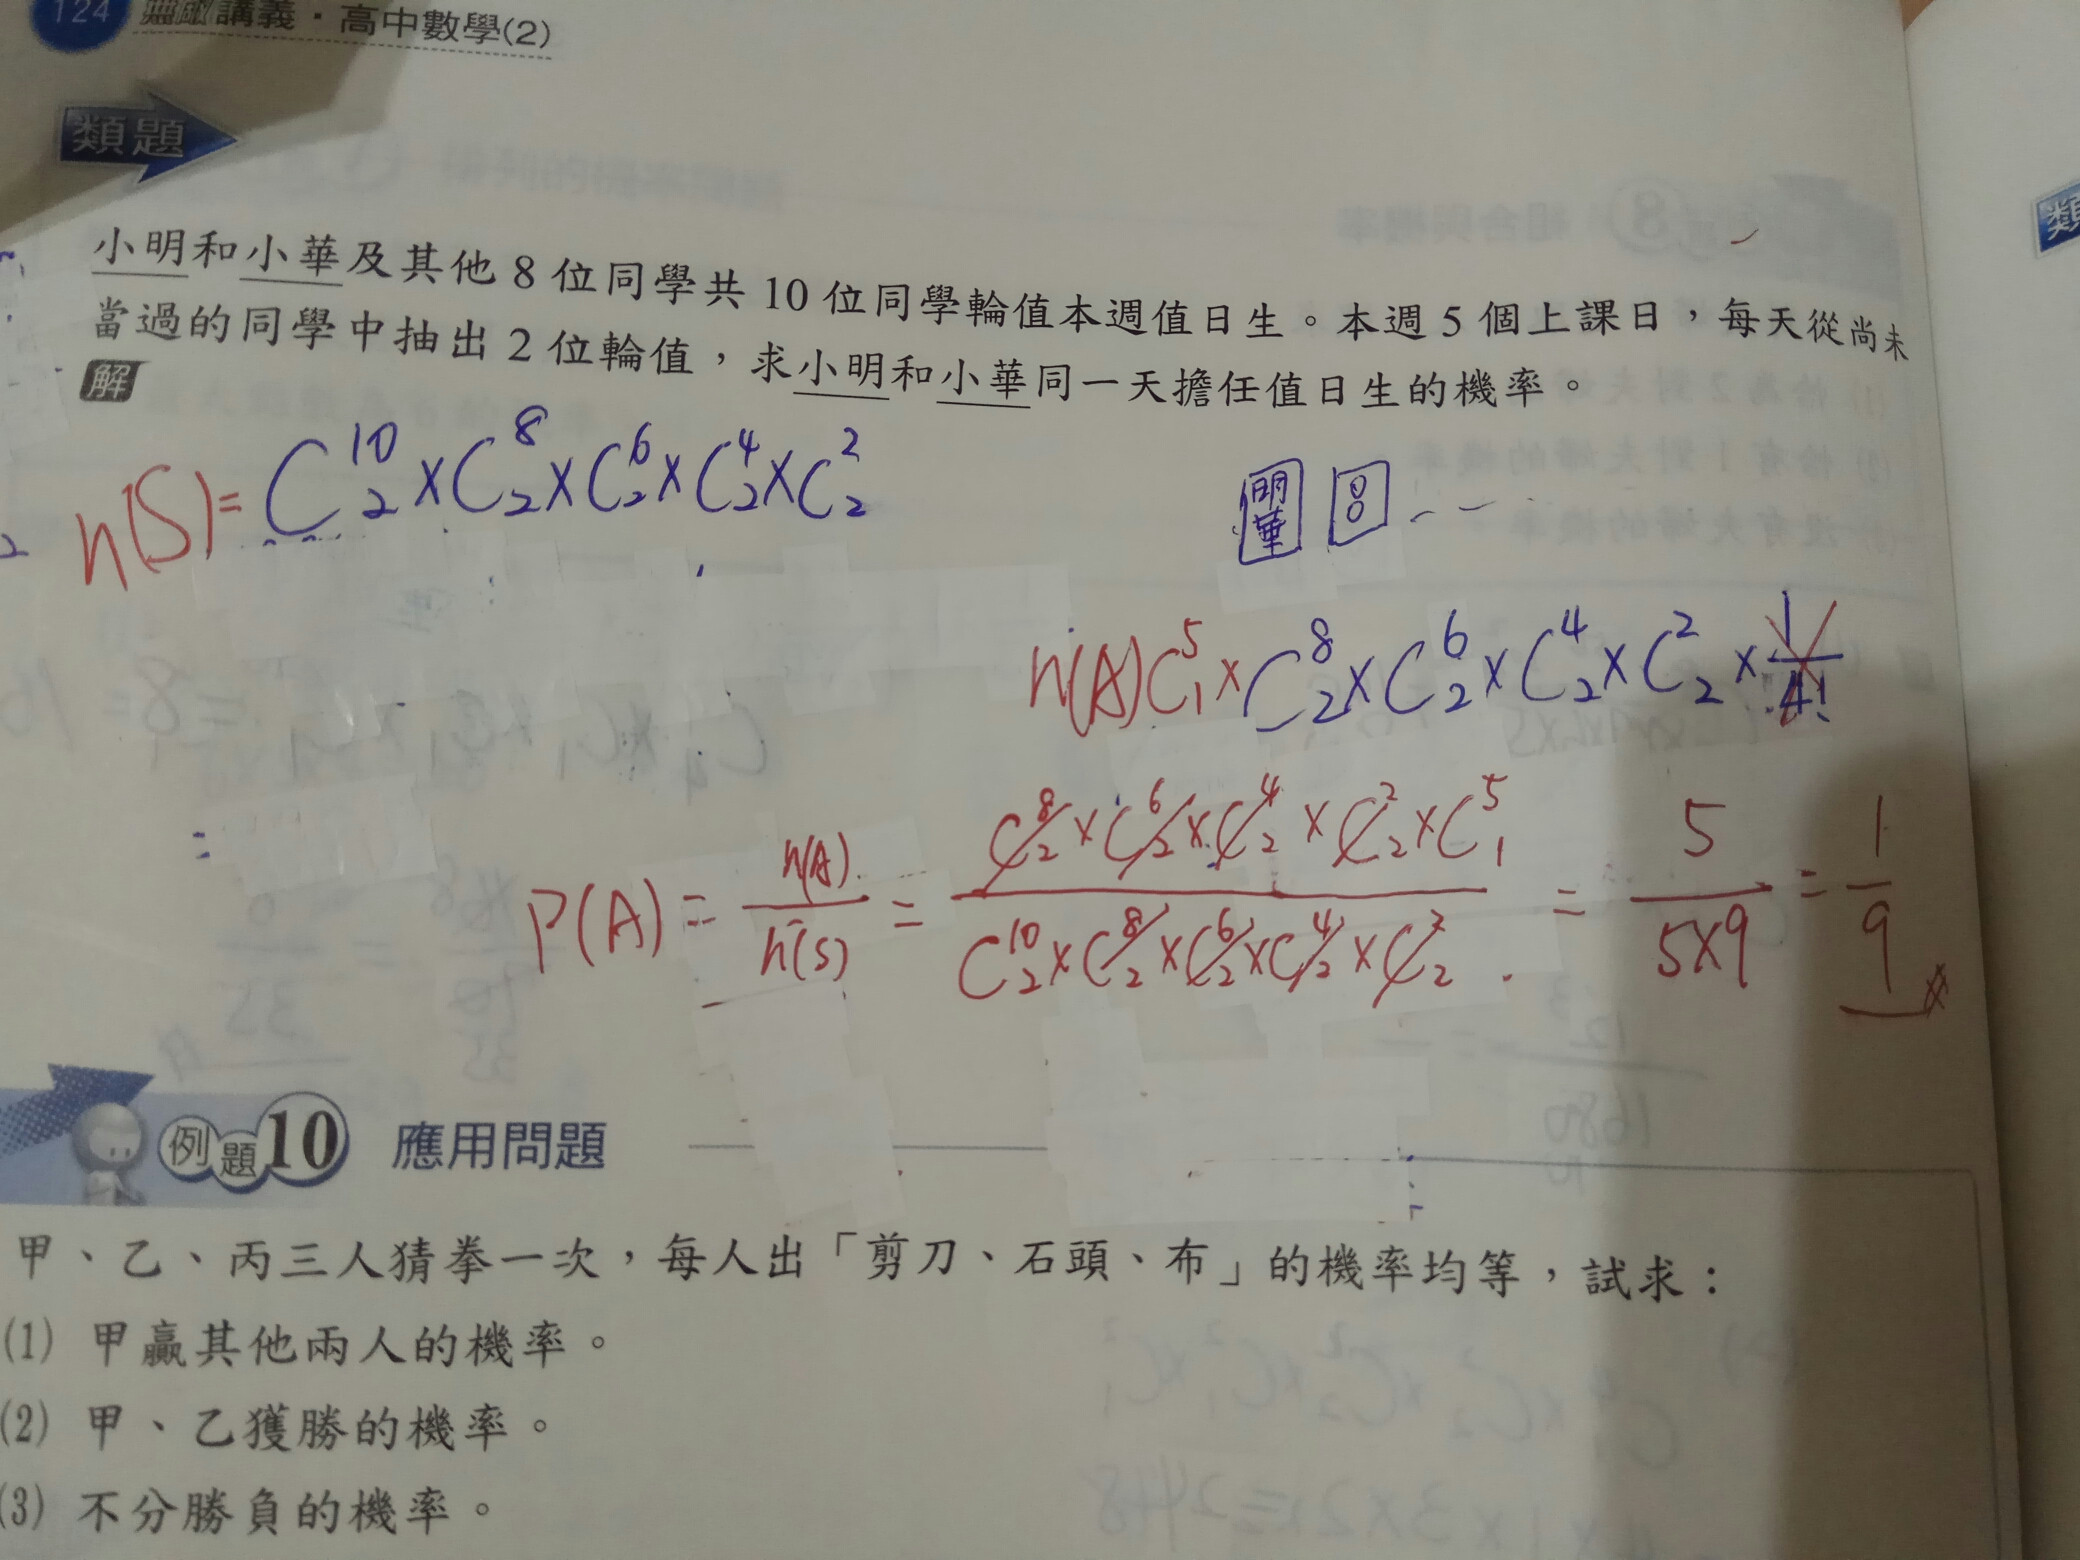 124 無敵講義・高中數學(2)
類題
小明和小華及其他 8 位同學共 10 位同學輪值本週值日生。本週 5 個上課日,每天從尚未
當過的同學中抽出 2 位輪值,求小明和小華同一天擔任值日生的機率。
解
n(S)= C¹⁰₂ × C⁸₂ × C⁶₂ × C⁴₂ × C²₂
明華 00 ---
n(A) C⁵₁ × C⁸₂ × C⁶₂ × C⁴₂ × C²₂ × 1/4!
P(A) = n(A)/n(S) = (C⁸₂ × C⁶₂ × C⁴₂ × C²₂ × C⁵₁)/(C¹⁰₂ × C⁸₂ × C⁶₂ × C⁴₂ × C²₂) = 5/(5×9) = 1/9
例題10 應用問題
甲、乙、丙三人猜拳一次,每人出「剪刀、石頭、布」的機率均等,試求:
(1) 甲贏其他兩人的機率。
(2) 甲、乙獲勝的機率。
(3) 不分勝負的機率。